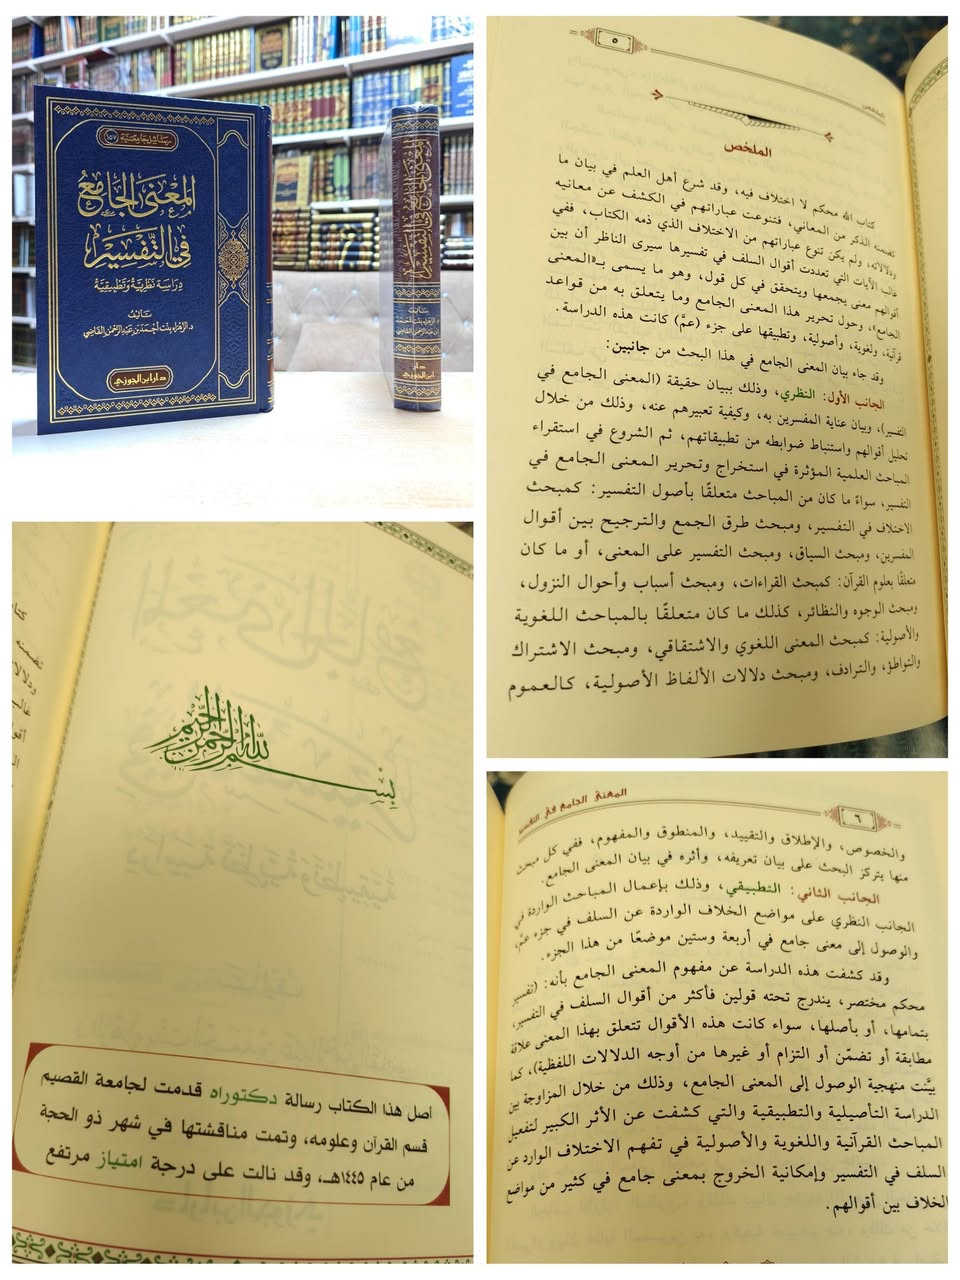 رسائل جامعية
المعنى الجامع
في التفسير
دراسة نظرية وتطبيقية
تأليف
د. الزهراء بنت أحمد بن عبد الرحمن القاضي
دار ابن الجوزي
المعنى الجامع في التفسير
تأليف
د. الزهراء بنت أحمد
بن عبد الرحمن القاضي
دار
ابن الجوزي
٥
الملخص
الملخص
كتاب الله محكم لا اختلاف فيه، وقد شرع أهل العلم في بيان ما
تضمنه الذكر من المعاني، فتنوعت عباراتهم في الكشف عن معانيه
ودلالاته، ولم يكن تنوع عباراتهم من الاختلاف الذي ذمه الكتاب، ففي
غالب الآيات التي تعددت أقوال السلف في تفسيرها سيرى الناظر أن بين
أقوالهم معنى يجمعها ويتحقق في كل قول، وهو ما يسمى بـ«المعنى
الجامع»، وحول تحرير هذا المعنى الجامع وما يتعلق به من قواعد
قرآنية، ولغوية، وأصولية، وتطبيقها على جزء (عمَّ) كانت هذه الدراسة.
وقد جاء بيان المعنى الجامع في هذا البحث من جانبين:
الجانب الأول: النظري، وذلك ببيان حقيقة (المعنى الجامع في
التفسير)، وبيان عناية المفسرين به، وكيفية تعبيرهم عنه، وذلك من خلال
تحليل أقوالهم واستنباط ضوابطه من تطبيقاتهم، ثم الشروع في استقراء
المباحث العلمية المؤثرة في استخراج وتحرير المعنى الجامع في
التفسير، سواءً ما كان من المباحث متعلقًا بأصول التفسير: كمبحث
الاختلاف في التفسير، ومبحث طرق الجمع والترجيح بين أقوال
المفسرين، ومبحث السياق، ومبحث التفسير على المعنى، أو ما كان
متعلقًا بعلوم القرآن: كمبحث القراءات، ومبحث أسباب وأحوال النزول،
ومبحث الوجوه والنظائر، كذلك ما كان متعلقًا بالمباحث اللغوية
والأصولية: كمبحث المعنى اللغوي والاشتقاقي، ومبحث الاشتراك
والتواطؤ، والترادف، ومبحث دلالات الألفاظ الأصولية، كالعموم
بسم الله الرحمن الرحيم
أصل هذا الكتاب رسالة دكتوراه قدمت لجامعة القصيم
قسم القرآن وعلومه، وتمت مناقشتها في شهر ذو الحجة
من عام ١٤٤٥هـ، وقد نالت على درجة امتياز مرتفع
المعنى الجامع في التفسير
٦
والخصوص، والإطلاق والتقييد، والمنطوق والمفهوم، ففي كل مبحث
منها يتركز البحث على بيان تعريفه، وأثره في بيان المعنى الجامع.
الجانب الثاني: التطبيقي، وذلك بإعمال المباحث الواردة في
الجانب النظري على مواضع الخلاف الواردة عن السلف في جزء عمَّ،
والوصول إلى معنى جامع في أربعة وستين موضعًا من هذا الجزء.
وقد كشفت هذه الدراسة عن مفهوم المعنى الجامع بأنه: (تفسير
محكم مختصر، يندرج تحته قولين فأكثر من أقوال السلف في التفسير،
بتمامها، أو بأصلها، سواء كانت هذه الأقوال تتعلق بهذا المعنى علاقة
مطابقة أو تضمّن أو التزام أو غيرها من أوجه الدلالات اللفظية)، كما
بيَّنت منهجية الوصول إلى المعنى الجامع، وذلك من خلال المزاوجة بين
الدراسة التأصيلية والتطبيقية والتي كشفت عن الأثر الكبير لتفعيل
المباحث القرآنية واللغوية والأصولية في تفهم الاختلاف الوارد عن
السلف في التفسير وإمكانية الخروج بمعنى جامع في كثير من مواضع
الخلاف بين أقوالهم.